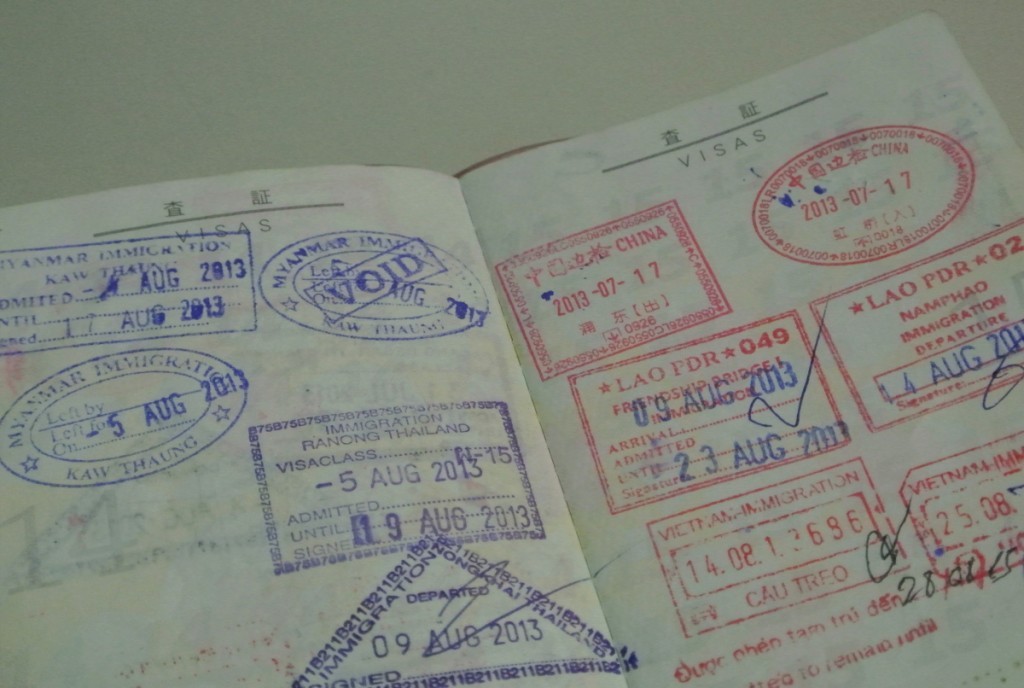 査 証
VISAS
MYANMAR IMMIGRATION
KAW THAUNG
AUG 2013
UNTIL 17 AUG 2013
MYANMAR IMMIG
Left by
VOID
AUG 2013
KAW THAUNG
MYANMAR IMMIGRATION
Left by
Left for
On -5 AUG 2013
KAW THAUNG
IMMIGRATION
RANONG THAILAND
VISACLASS
-5 AUG 2013
ADMITTED
UNTIL 19 AUG 2013
SIGNED
IMMIGRATION NONGKHAI THAILAND
DEPARTED
09 AUG 2013
SIGNED
査 証
VISAS
中国边检 CHINA
2013-07-17
浦东[出]
0926
中国边检 CHINA
2013-07-17
虹桥[入]
LAO PDR 049
FRIENDSHIP BRIDGE I
IMMIGRATION
09 AUG 2013
ARRIVAL
ADMITTED
UNTIL 23 AUG 2013
Signature
LAO PDR 02
NAMPHAO
IMMIGRATION
DEPARTURE
14 AUG 201
Signature:
VIETNAM-IMMIGRATION
14.08.1 3696
CẦU TREO
VIETNAM-IMM
25.08.
Được phép tạm trú đến
to remain until